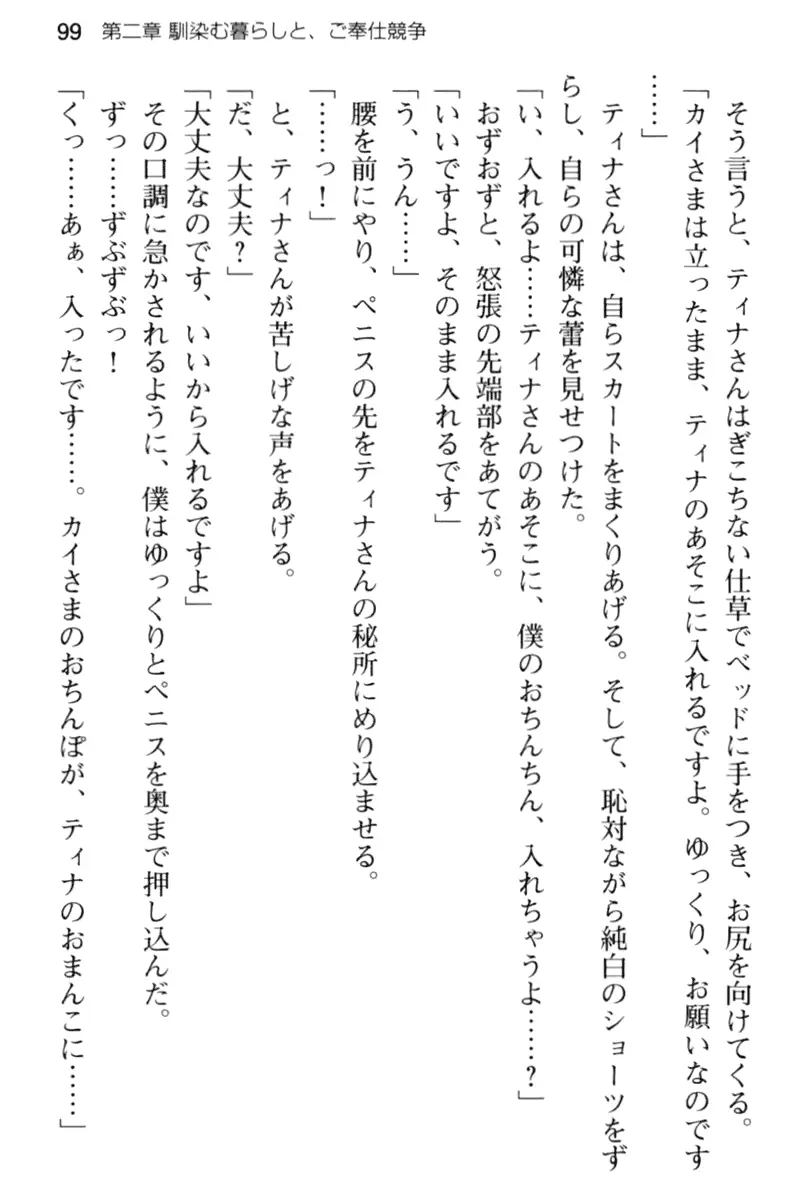 99 第二章 馴染む暮らしと、ご奉仕競争
そう言うと、ティナさんはぎこちない仕草でベッドに手をつき、お尻を向けてくる。
「カイさまは立ったまま、ティナのあそこに入れるですよ。ゆっくり、お願いなのです
……」
ティナさんは、自らスカートをまくりあげる。そして、恥対ながら純白のショーツをず
らし、自らの可憐な蕾を見せつけた。
「い、入れるよ……ティナさんのあそこに、僕のおちんちん、入れちゃうよ……?」
おずおずと、怒張の先端部をあてがう。
「いいですよ、そのまま入れるです」
「う、うん……」
腰を前にやり、ペニスの先をティナさんの秘所にめり込ませる。
「……っ!」
と、ティナさんが苦しげな声をあげる。
「だ、大丈夫?」
「大丈夫なのです、いいから入れるですよ」
その口調に急かされるように、僕はゆっくりとペニスを奥まで押し込んだ。
ずっ……ずぶずぶっ!
「くっ……あぁ、入ったです……。カイさまのおちんぽが、ティナのおまんこに……」